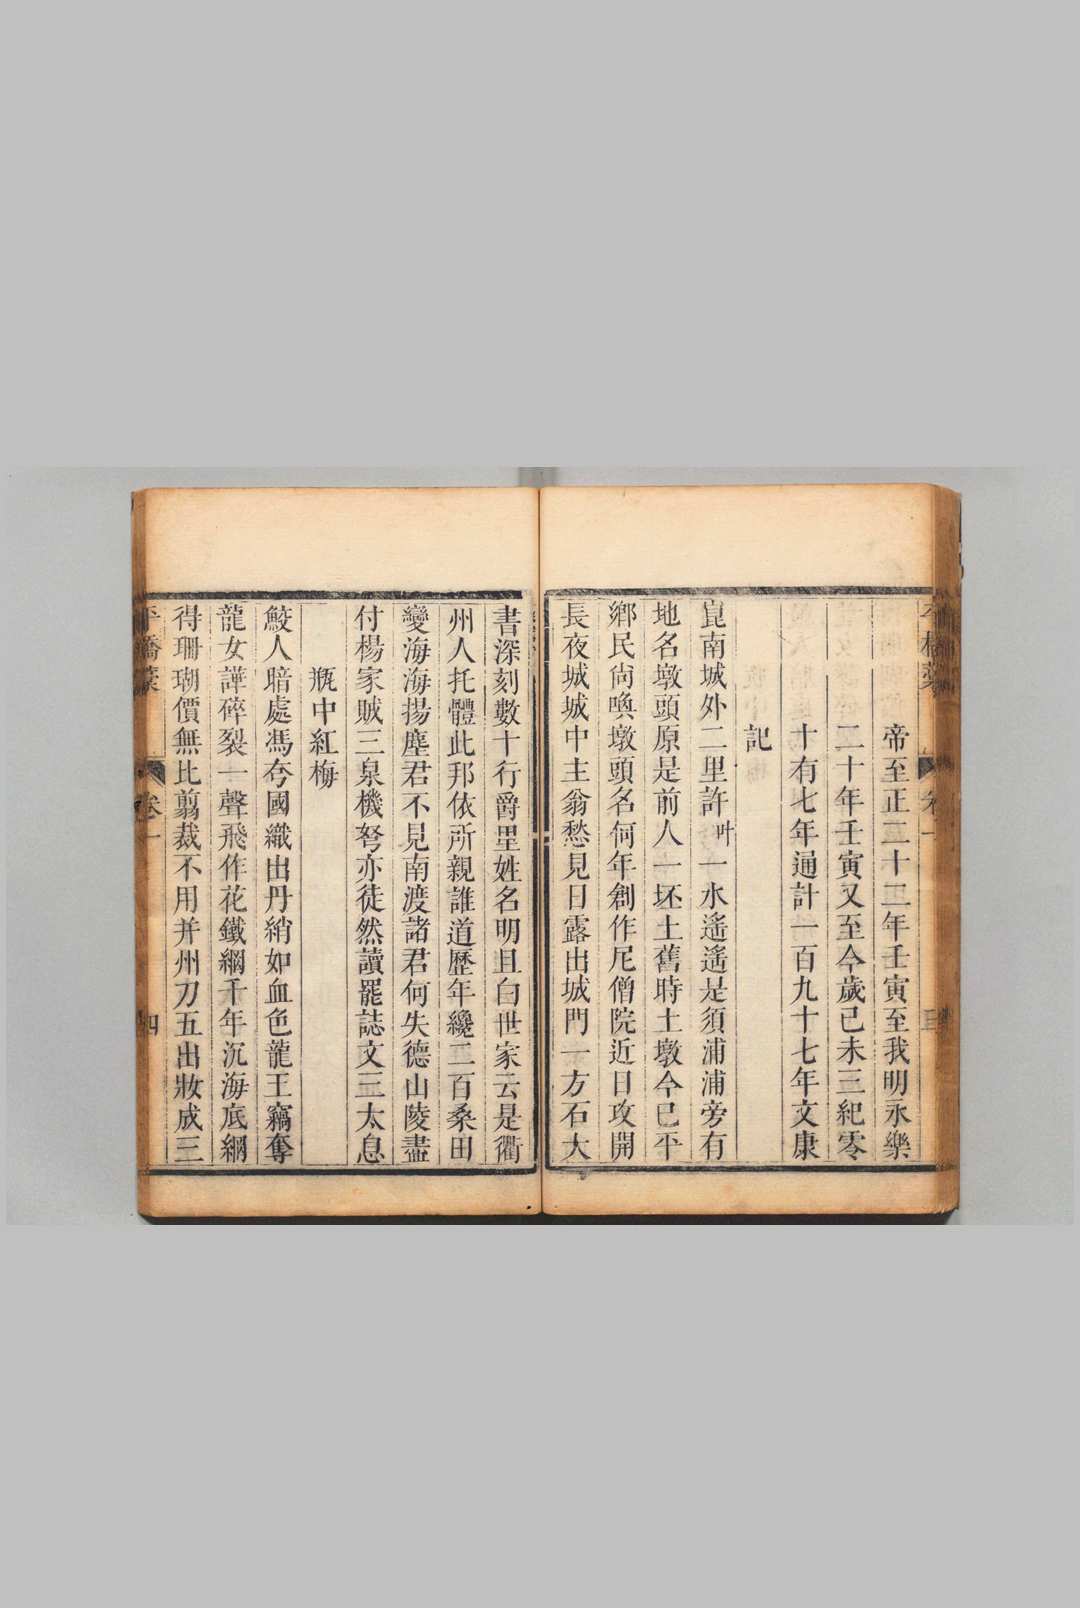 帝至正二十二年壬寅至我明永樂
二十年壬寅又至今歲己未三紀零
十有七年通計一百九十七年文康
記
崑南城外二里許叶一水遙遙是須浦浦旁有
地名墩頭原是前人一坯土舊時土墩今已平
鄉民尙喚墩頭名何年創作尼僧院近日攻開
長夜城城中主翁愁見日露出城門一方石大
書深刻數十行爵里姓名明且白世家云是衢
州人托體此邦依所親誰道歷年纔二百桑田
變海海揚塵君不見南渡諸君何失德山陵盡
付楊家賊三泉機弩亦徒然讀罷誌文三太息
瓶中紅梅
鮫人暗處馮夸國織出丹綃如血色龍王竊奪
龍女譁碎裂一聲飛作花鐵網千年沉海底網
得珊瑚價無比翦裁不用并州刀五出妝成三
平橋藁
卷一
四